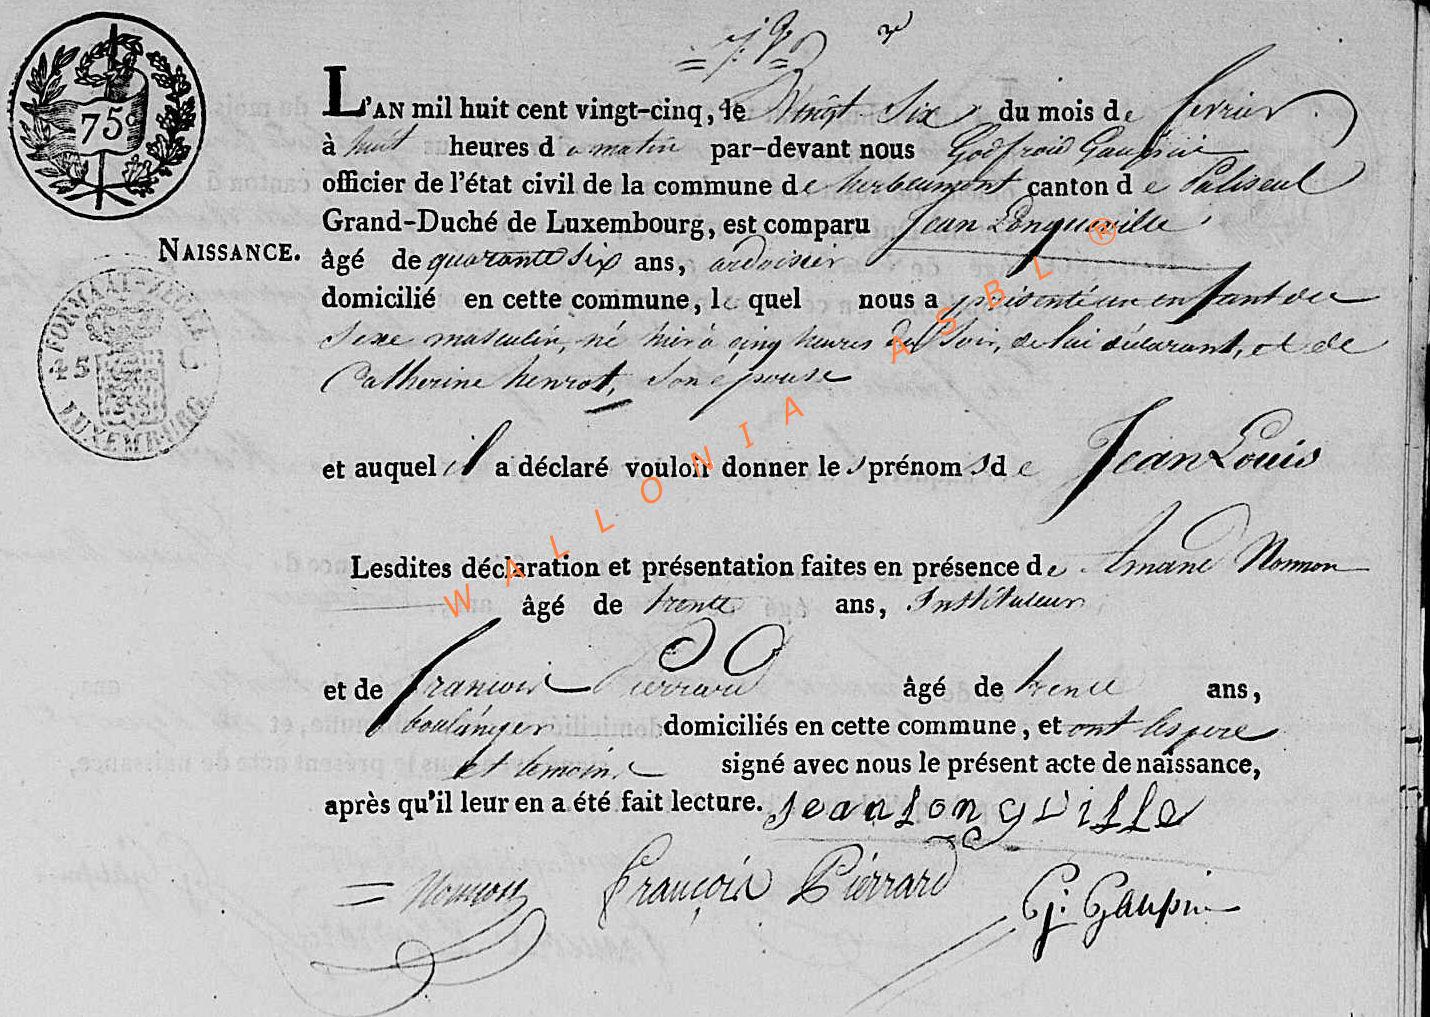 75c
L'AN mil huit cent vingt-cinq, le Vingt Six du mois de fevrier
à huit heures du matin par-devant nous Godfroid Gaupin
officier de l'état civil de la commune de herbeumont canton de Paliseul
Grand-Duché de Luxembourg, est comparu Jean Longueville
NAISSANCE.
âgé de quarante six ans, ardoisier
domicilié en cette commune, le quel nous a présenté un enfant du
Sexe masculin, né hier à cinq heures du Soir, de lui déclarant, et de
Catherine henrot, Son epouse
FORMAAT-ZEGEL
5 C
LUXEMBURG
et auquel il a déclaré vouloir donner les prénoms de Jean Louis
Lesdites déclaration et présentation faites en présence de Amand Nomon
âgé de trente ans, Instituteur
et de francois Pierrard âgé de trente ans,
boulanger domiciliés en cette commune, et ont les pere
et temoins signé avec nous le présent acte de naissance,
après qu'il leur en a été fait lecture. jean longville
Nomon François Pierrard G: Gaupin
WALLONIA ASBL ®